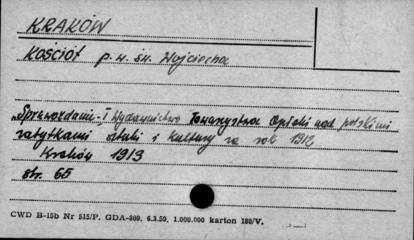 KRAKÓW
KOŚCIÓŁ p.w. św. Wojciecha
„Sprawozdanie i Wydawnictwo Towarzystwa Opieki nad polskimi
zabytkami sztuki i kultury za rok 1912
Kraków 1913
str. 65
CWD B-15b Nr 515/P. GDA-809, 6.3.59, 1.000.000 karton 180/V.